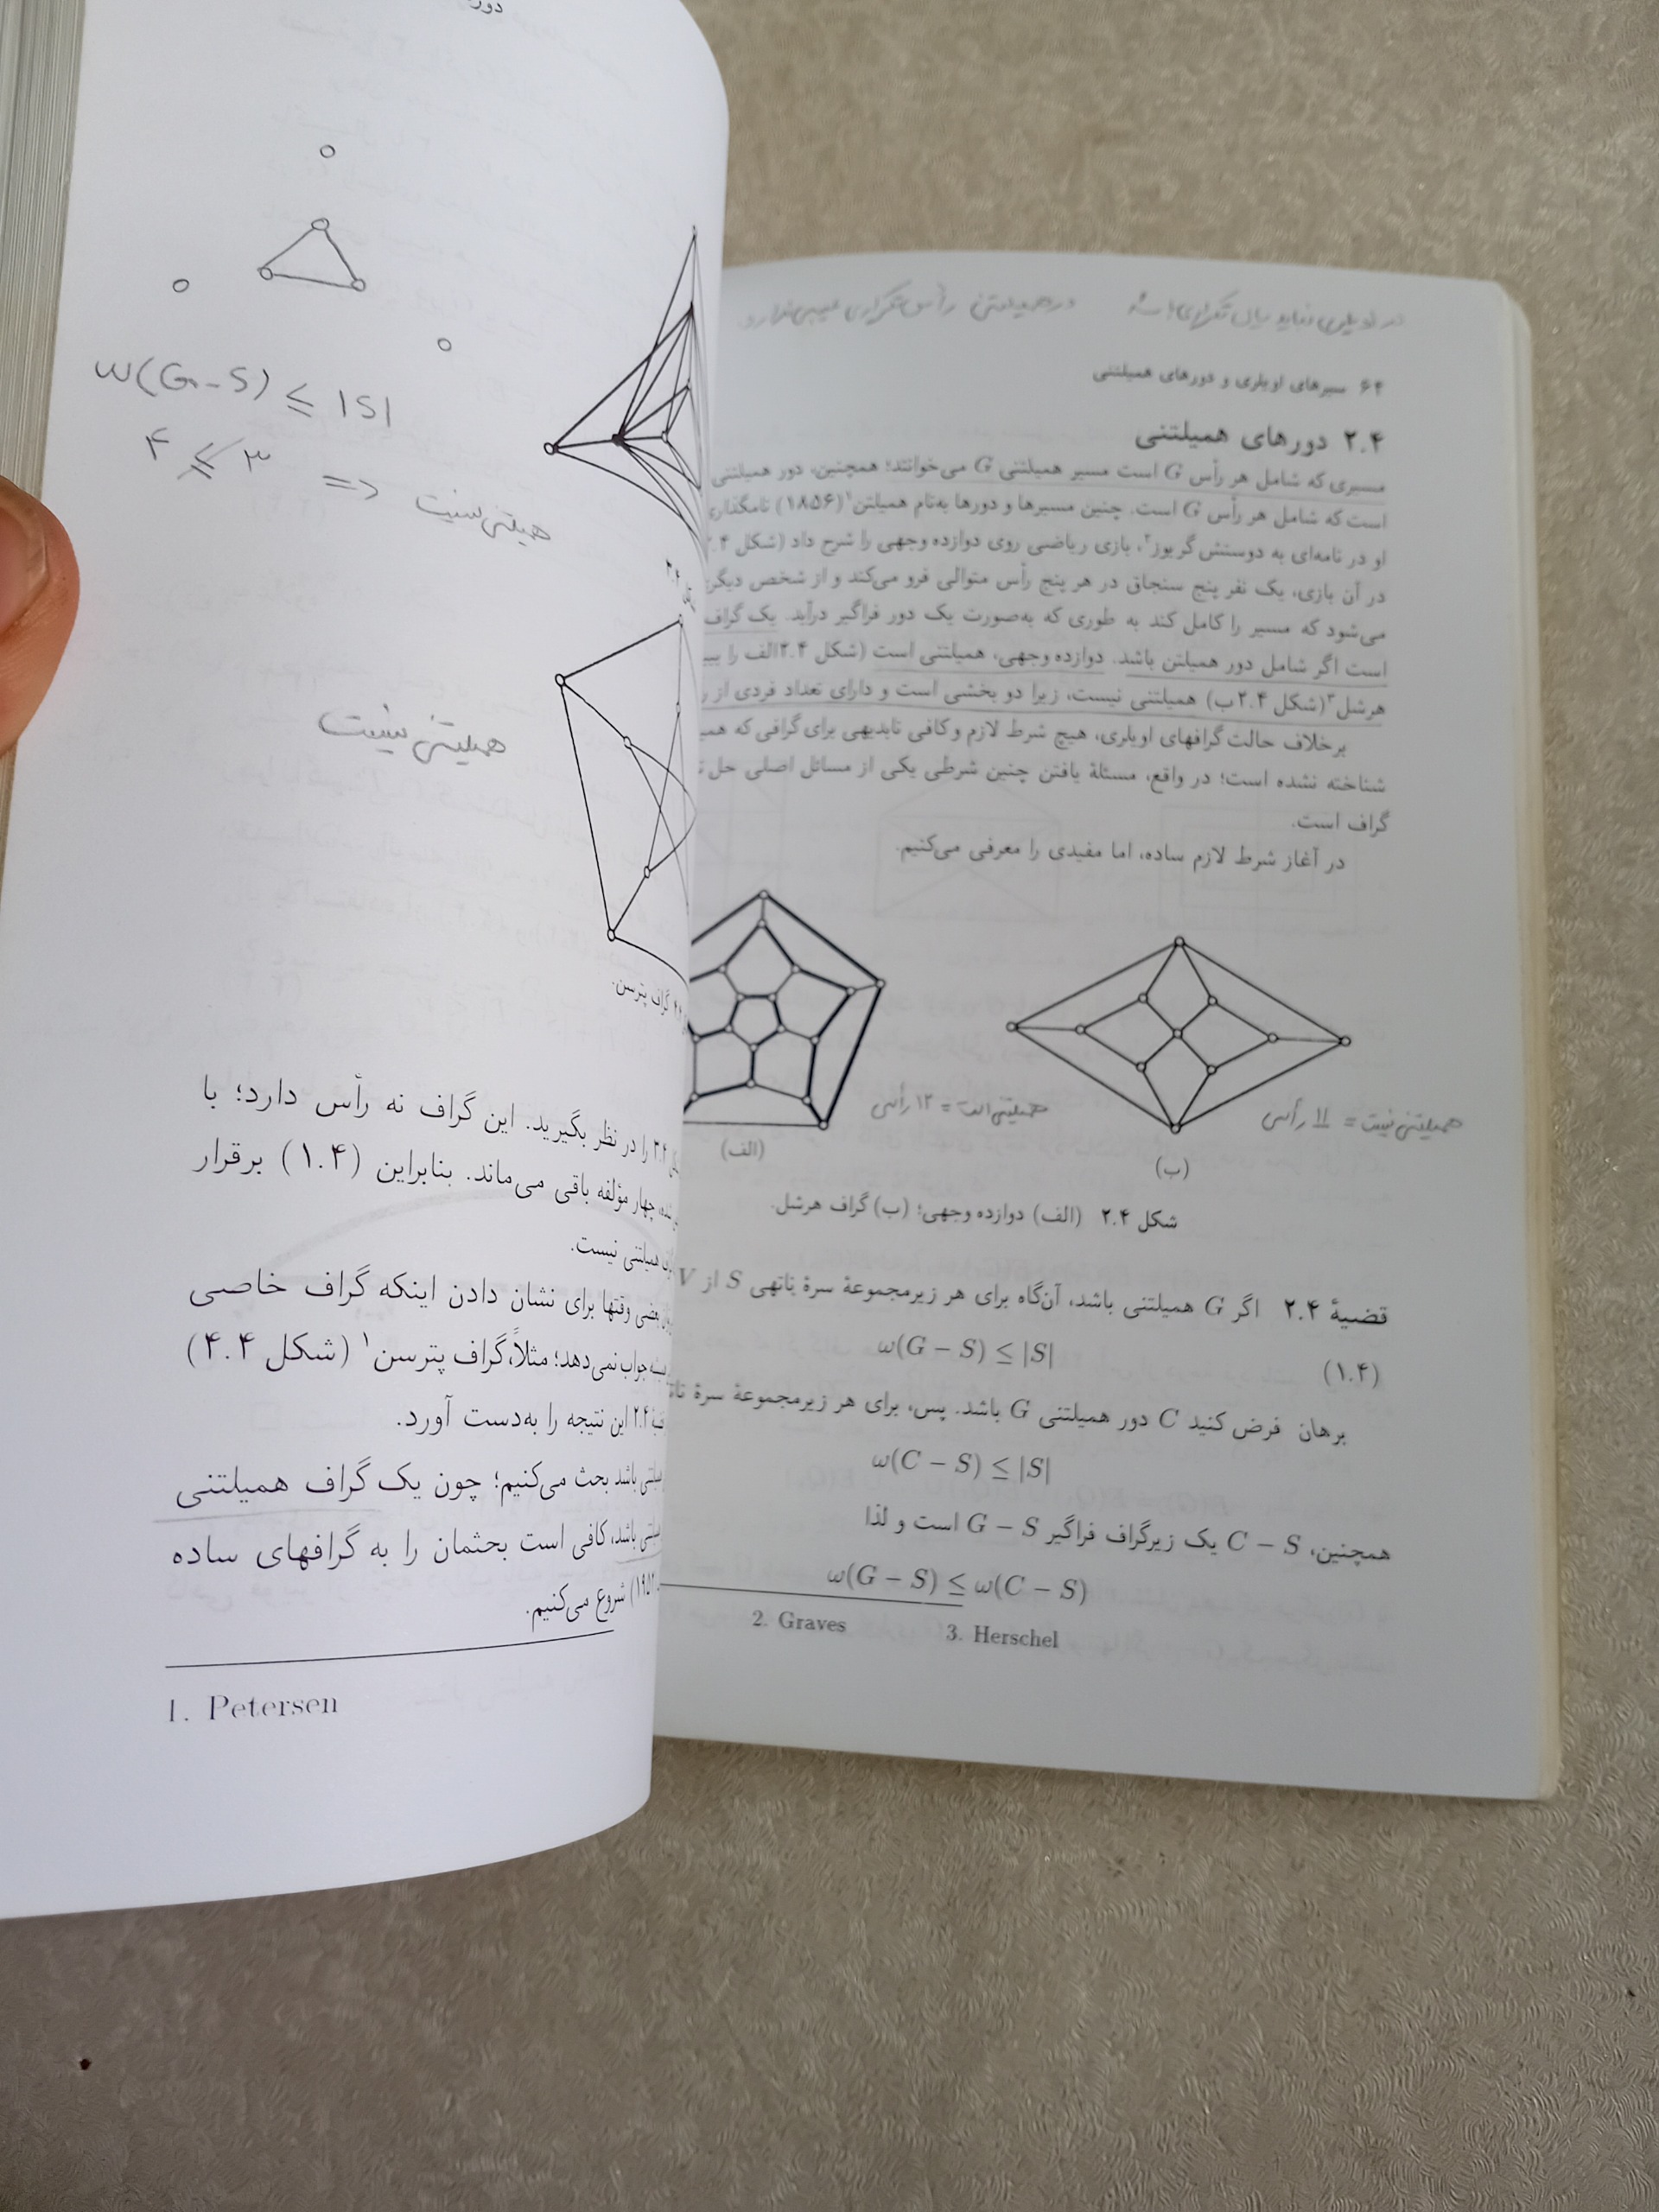 ۶۴ سیرهای اویلری و دورهای همیلتنی
۲.۴ دورهای همیلتنی
مسیری که شامل هر رأس G است مسیر همیلتنی G می‌خوانند؛ همچنین، دور همیلتنی
است که شامل هر رأس G است. چنین مسیرها و دورها به‌نام همیلتن۱ (۱۸۵۶) نامگذاری
او در نامه‌ای به دوستش گریوز۲، بازی ریاضی روی دوازده وجهی را شرح داد (شکل ۲.۴
در آن بازی، یک نفر پنج سنجاق در هر پنج رأس متوالی فرو می‌کند و از شخص دیگر
می‌شود که مسیر را کامل کند به طوری که به‌صورت یک دور فراگیر درآید. یک گراف
است اگر شامل دور همیلتن باشد. دوازده وجهی، همیلتنی است (شکل ۲.۴الف را
هرشل۳ (شکل ۲.۴ب) همیلتنی نیست، زیرا دو بخشی است و دارای تعداد فردی از
برخلاف حالت گرافهای اویلری، هیچ شرط لازم و کافی نابدیهی برای گرافی که
شناخته نشده است؛ در واقع، مسئلهٔ یافتن چنین شرطی یکی از مسائل اصلی حل
گراف است.
در آغاز شرط لازم ساده، اما مفیدی را معرفی می‌کنیم.
همیلتنی نیست = ۱۱ رأس
همیلتنی است = ۱۲ رأس
(ب)
(الف)
شکل ۲.۴ (الف) دوازده وجهی؛ (ب) گراف هرشل.
قضیهٔ ۲.۴ اگر G همیلتنی باشد، آن‌گاه برای هر زیرمجموعهٔ سرهٔ ناتهی S از V
ω(G − S) ≤ |S| (۱.۴)
برهان فرض کنید C دور همیلتنی G باشد. پس، برای هر زیرمجموعهٔ سرهٔ
ω(C − S) ≤ |S|
همچنین، C − S یک زیرگراف فراگیر G − S است و لذا
ω(G − S) ≤ ω(C − S)
2. Graves 3. Herschel
ω(G-S) ≤ |S|
۴ ≰ ۳ => همیلتنی نیست
همیلتنی نیست
گراف پترسن.
۳.۴ را در نظر بگیرید. این گراف نه رأس دارد؛ با
چهار مؤلفه باقی می‌ماند. بنابراین (۱.۴) برقرار
همیلتنی نیست.
بعضی وقتها برای نشان دادن اینکه گراف خاصی
جواب نمی‌دهد؛ مثلاً، گراف پترسن۱ (شکل ۴.۴)
۲.۴ این نتیجه را به‌دست آورد.
باشد بحث می‌کنیم؛ چون یک گراف همیلتنی
باشد، کافی است بحثمان را به گرافهای ساده
شروع می‌کنیم.
1. Petersen